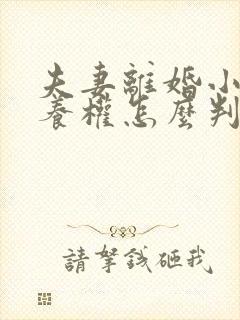 夫妻離婚小
養權怎麼判
請拏錢砸我